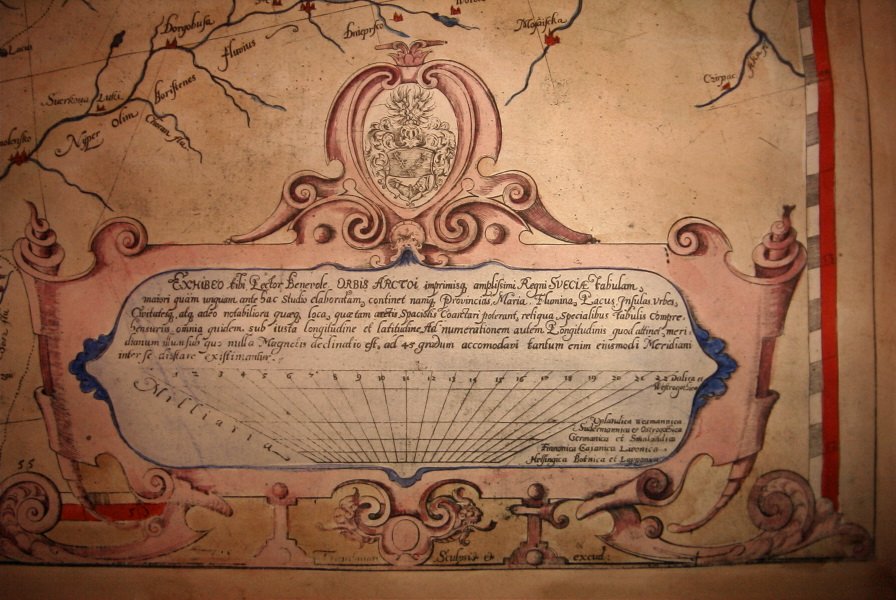 Dorogobusa
Dnieprsko
Mosaiscka
Fluvius
Boristenes
Lacus
Olim
Nyper
EXHIBEO tibi Lector Benevole ORBIS ARCTOI imprimisq; amplissimi Regni SVECIÆ tabulam,
maiori quam unquam ante hac Studio elaboratam, continet nanq; Provincias, Maria, Flumina, Lacus, Insulas, Urbes,
Civitatesq; atq; adeo notabiliora quæq; loca, quæ tam arctis Spaciis Coarctari poterant, reliqua Specialibus Tabulis Compre-
hensuris omnia quidem sub iusta longitudine et latitudine, Ad numerationem autem Longitudinis quod attinet, meri-
dianum illum sub quo nulla Magnetis declinatio est, ad 45 gradum accomodavi tantum enim eiusmodi Meridiani
inter se distare existimantur.
1 2 3 4 5 6 7 8 9 10 11 12 13 14 15 16 17 18 19 20 21 22 Dalica et
Westrogothica
Milliaria
Uplandica Wesmannica
Sudermannica et Ostrogothica
Germanica et Smalandica
Finnonica Caianica Livonica
Helsingica Botnica et Lapponica
55
Sculpsit et excud: